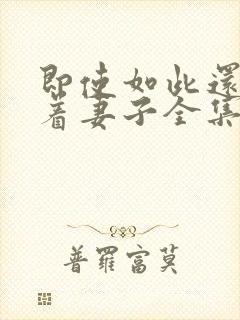 即使如此還
着妻子全集
普羅富莫